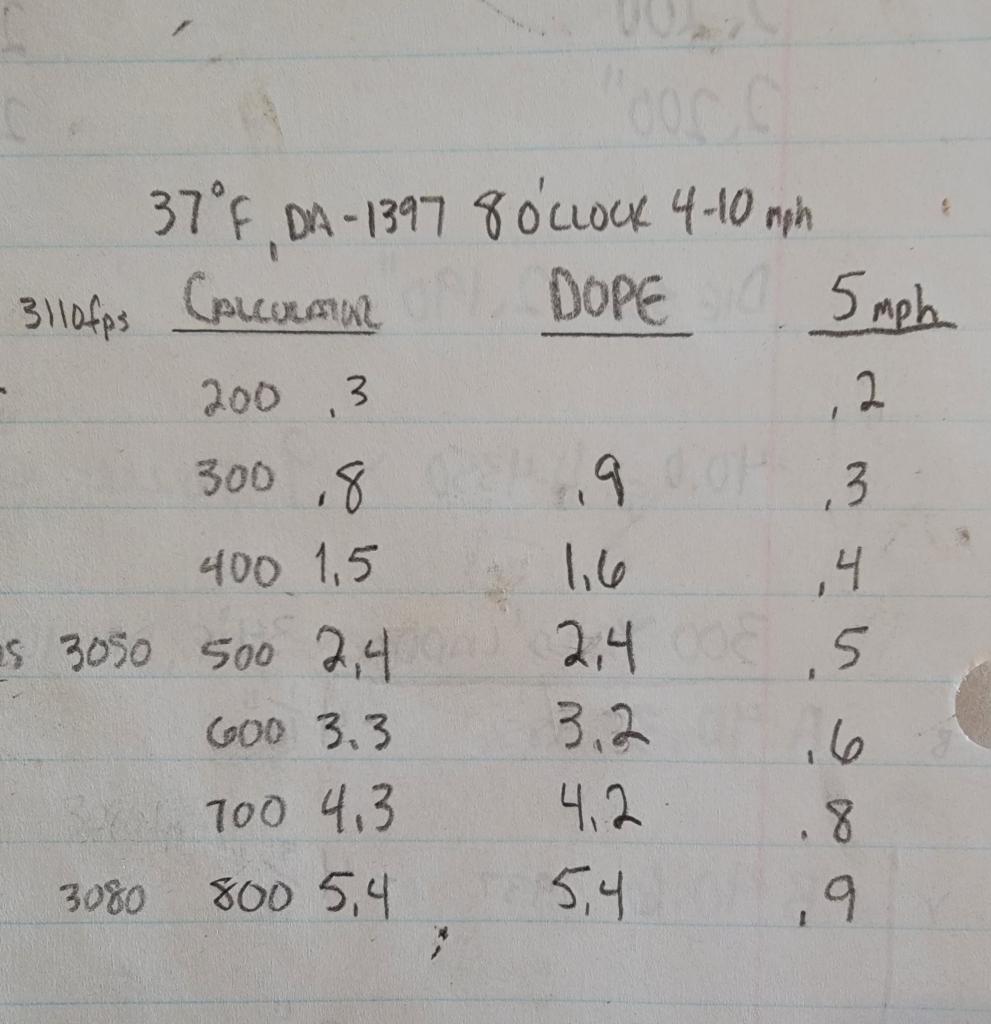 37°F, DA-1397 8 O'CLOCK 4-10 mph
3110fps CALCULATOR DOPE 5 mph
200 .3 .2
300 .8 .9 .3
400 1.5 1.6 .4
3050 500 2.4 2.4 .5
600 3.3 3.2 .6
700 4.3 4.2 .8
3080 800 5.4 5.4 .9